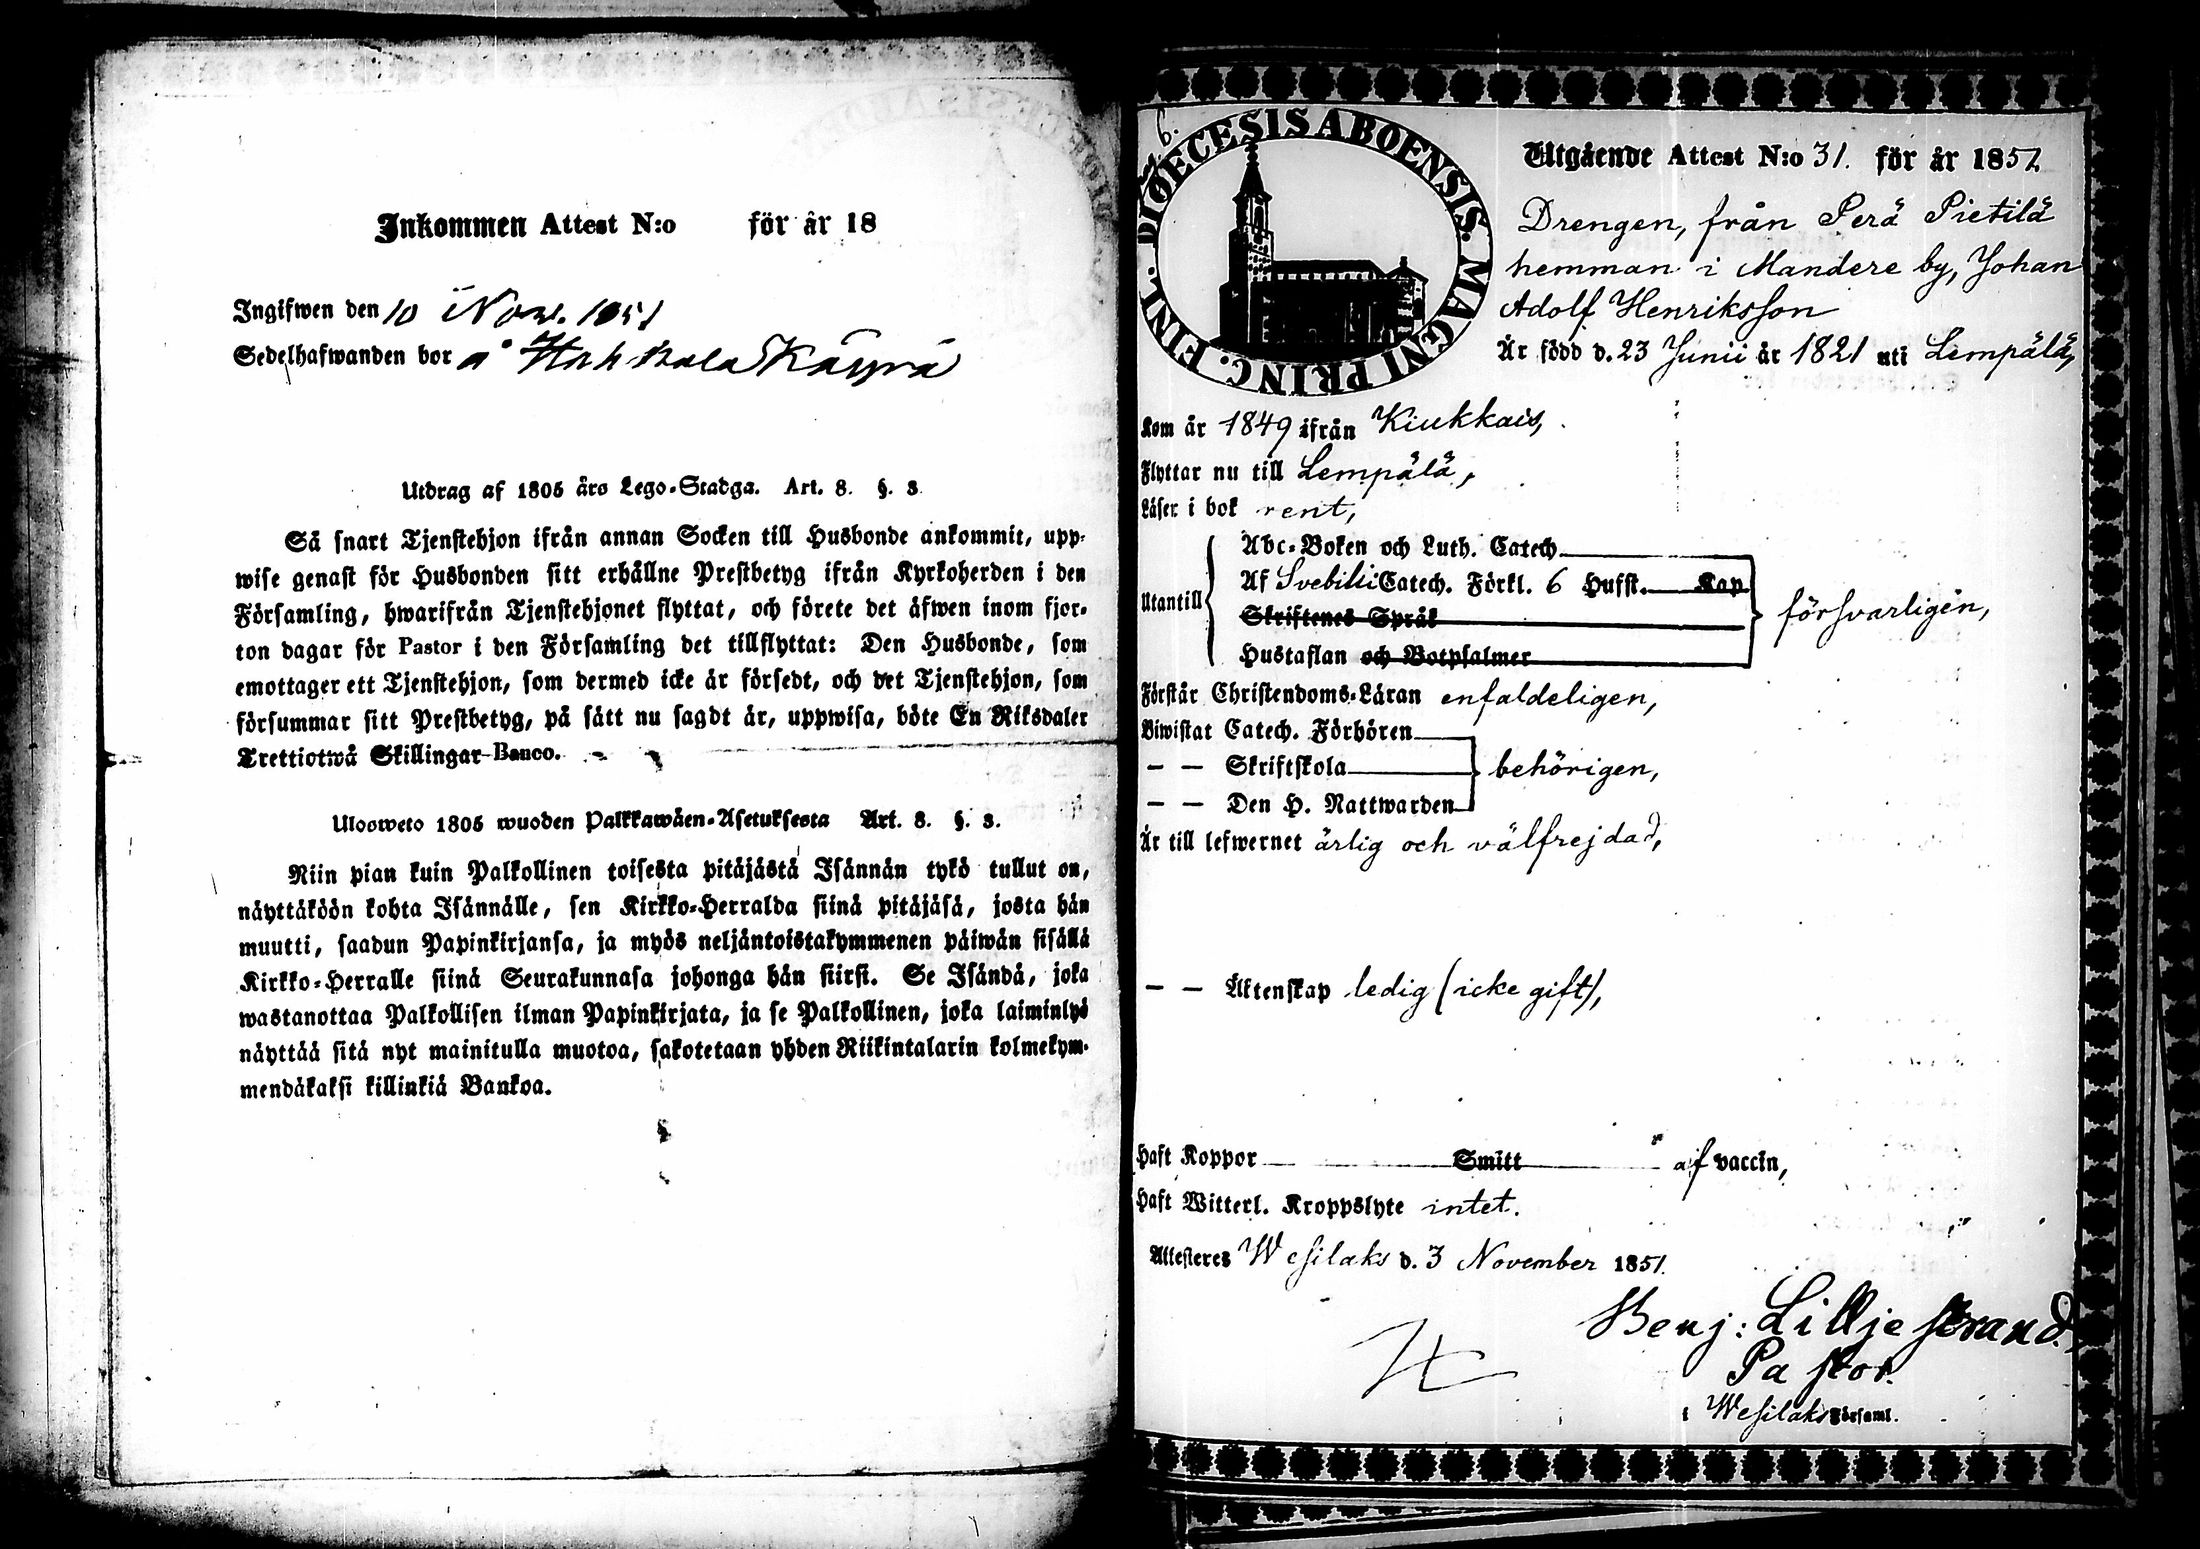 Inkommen Attest N:o för år 18
Ingifwen den 10 Nov. 1851
Sedelhafwanden bor å Hahkala Käyrä
Utdrag af 1805 års Lego-Stadga. Art. 8. §. 3.
Så snart Tjenstehjon ifrån annan Socken till Husbonde ankommit, upp-
wise genast för Husbonden sitt erhållne Prestbetyg ifrån Kyrkoherden i den
Församling, hwarifrån Tjenstehjonet flyttat, och förete det äfwen inom fjor-
ton dagar för Pastor i den Församling det tillflyttat: Den Husbonde, som
emottager ett Tjenstehjon, som dermed icke är försedt, och det Tjenstehjon, som
försummar sitt Prestbetyg, på sätt nu sagdt är, uppwisa, böte En Riksdaler
Trettiotwå Skillingar Banco.
Ulosweto 1805 wuoden Palkkawäen-Asetuksesta Art. 8. §. 3.
Niin pian kuin Palkollinen toisesta pitäjästä Isännän tykö tullut on,
näyttäköön kohta Isännälle, sen Kirkko-Herralda siinä pitäjäsä, josta hän
muutti, saadun Papinkirjansa, ja myös neljäntoistakymmenen päiwän sisällä
Kirkko-Herralle siinä Seurakunnasa johonga hän siirsi. Se Isändä, joka
wastanottaa Palkollisen ilman Papinkirjata, ja se Palkollinen, joka laiminlyö
näyttää sitä nyt mainitulla muotoa, sakotetaan yhden Riikintalarin kolmekym-
mendäkaksi killinkiä Bankoa.
6.
DIOECESIS ABOENSIS. MAGNI PRINC. FINL.
Utgående Attest N:o 31. för år 1851
Drengen, från Perä Pietilä
hemman i Mandere by, Johan
Adolf Henriksson
Är född d. 23 Junii år 1821 uti Lempälä,
Kom år 1849 ifrån Kiukkais,
Flyttar nu till Lempälä,
Läser i bok rent,
Utantill
Abc-Boken och Luth. Catech.
Af Svebilii Catech. Förkl. 6 Hufst. Kap
Skriftenes Språk
Hustaflan och Botpsalmer
försvarligen,
Förstår Christendoms-Läran enfaldeligen,
Biwistat Catech. Förhören
— — Skriftskola
— — Den H. Nattwarden
behörigen,
Är till lefwernet ärlig och välfrejdad,
— — Äktenskap ledig (icke gift),
Haft Koppor Smitt af vaccin,
Haft Witterl. Kroppslyte intet.
Attesteres Wesilaks d. 3 November 1851.
Benj: Lilljestrand.
Pastor.
i Wesilaks Församl.